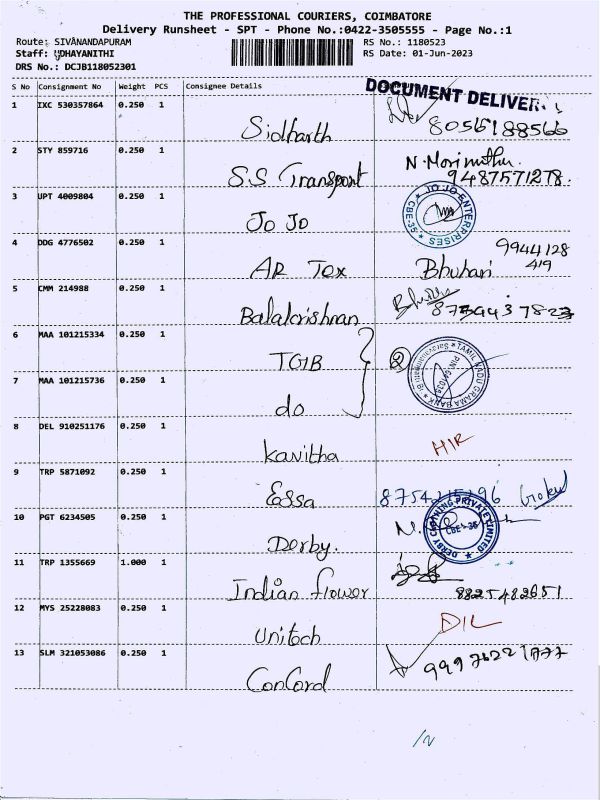 THE PROFESSIONAL COURIERS, COIMBATORE
Delivery Runsheet - SPT - Phone No.:0422-3505555 - Page No.:1
Route: SIVANANDAPURAM RS No.: 1180523
Staff: UDHAYANITHI RS Date: 01-Jun-2023
DRS No.: DCJB118052301
S No Consignment No Weight PCS Consignee Details
DOCUMENT DELIVER
1 IXC 530357864 0.250 1
Sidharth 8056188566
2 STY 859716 0.250 1
S.S Transport N. Morimuthu 9487571278.
3 UPT 4009804 0.250 1
Jo Jo JO JO ENTERPRISES CBE-35
4 DDG 4776502 0.250 1
AR Tex Bhuhari 9944128 419
5 CMM 214988 0.250 1
Balakrishnan
6 MAA 101215334 0.250 1
TGIB 2 TAMIL NADU GRAMA BANK
7 MAA 101215736 0.250 1
do
8 DEL 910251176 0.250 1
Kavitha HIR
9 TRP 5871092 0.250 1
Essa Gokul
10 PGT 6234505 0.250 1
Derby. DERBY CLOTHING PRIVATE LIMITED CBE-35
11 TRP 1355669 1.000 1
Indian flower 8825482651
12 MYS 25228083 0.250 1
Unitech DIL
13 SLM 321053086 0.250 1
ConCord